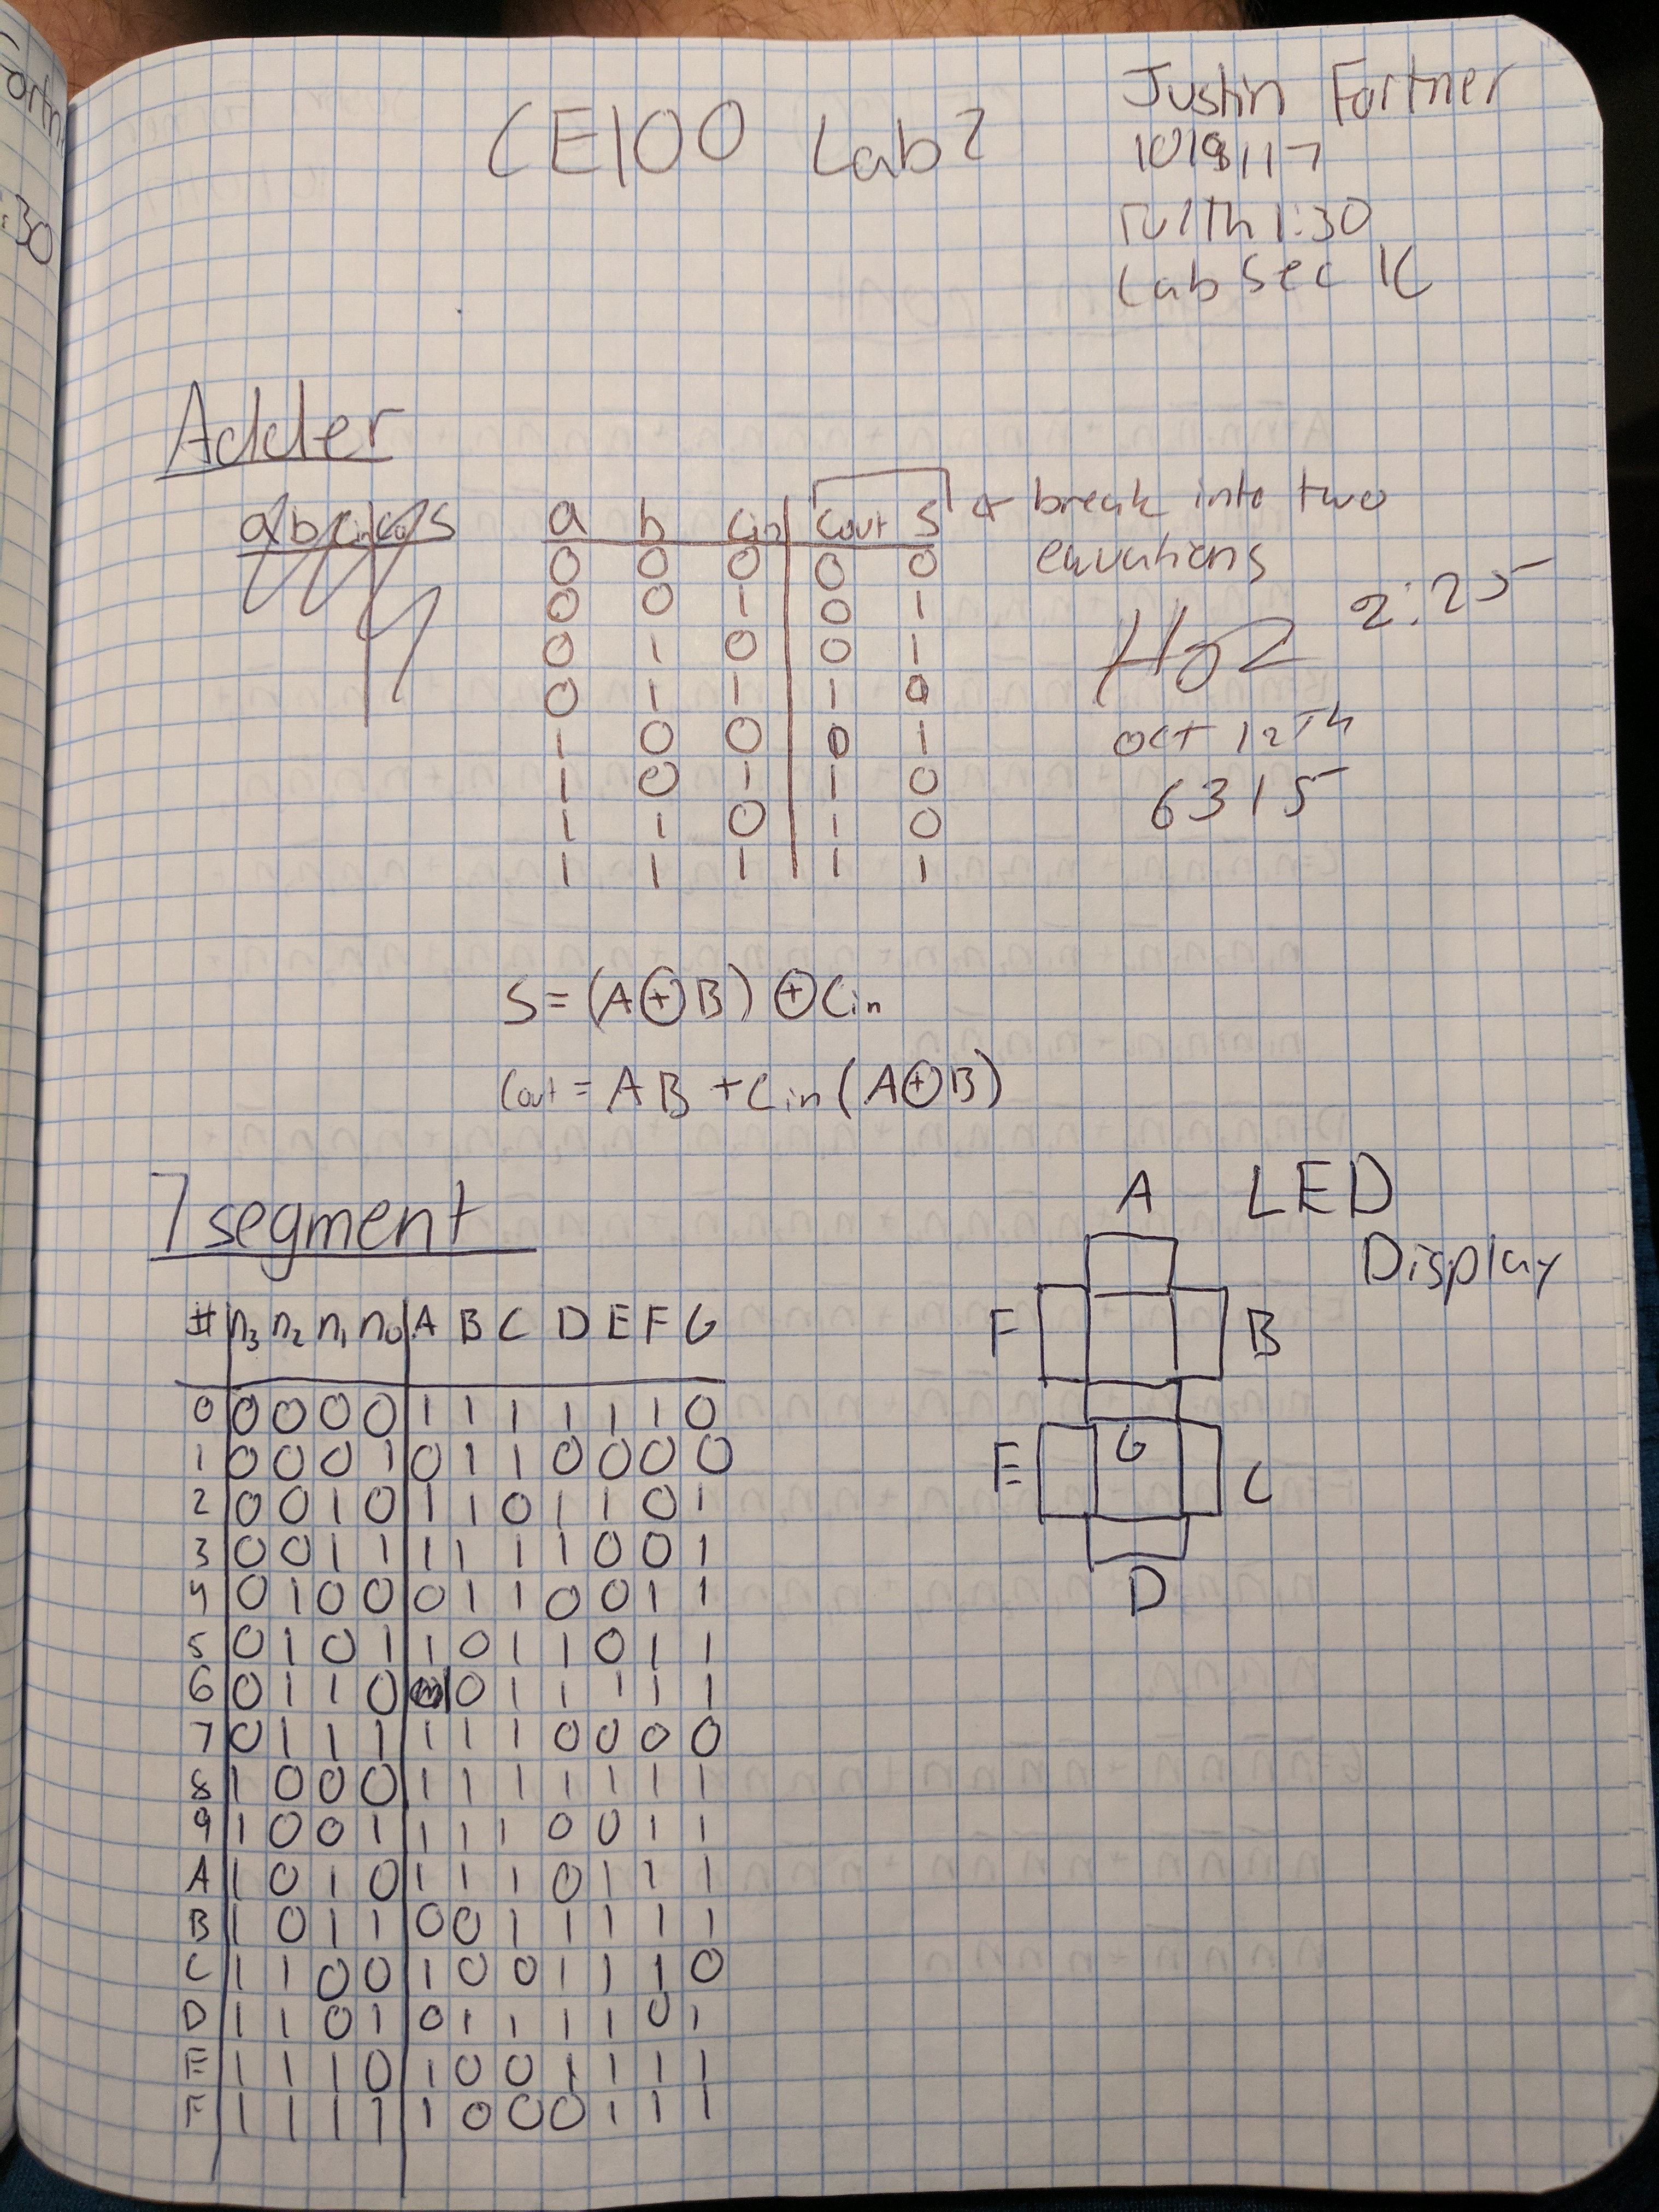 CE100 Lab2
Justin Fortner
10/9/17
Tu/Th 1:30
Lab Sec 1C
:30
Adder
a b cin cout s
a b cin cout s ← break into two
equations
0 0 0 0 0
0 0 1 0 1
0 1 0 0 1
0 1 1 1 0
1 0 0 0 1
1 0 1 1 0
1 1 0 1 0
1 1 1 1 1
2:25
Oct 12th
6315
S = (A⊕B) ⊕ Cin
Cout = AB + Cin(A⊕B)
7 segment
# n3 n2 n1 n0 A B C D E F G
0 0 0 0 0 1 1 1 1 1 1 0
1 0 0 0 1 0 1 1 0 0 0 0
2 0 0 1 0 1 1 0 1 1 0 1
3 0 0 1 1 1 1 1 1 0 0 1
4 0 1 0 0 0 1 1 0 0 1 1
5 0 1 0 1 1 0 1 1 0 1 1
6 0 1 1 0 1 0 1 1 1 1 1
7 0 1 1 1 1 1 1 0 0 0 0
8 1 0 0 0 1 1 1 1 1 1 1
9 1 0 0 1 1 1 1 0 0 1 1
A 1 0 1 0 1 1 1 0 1 1 1
B 1 0 1 1 0 0 1 1 1 1 1
C 1 1 0 0 1 0 0 1 1 1 0
D 1 1 0 1 0 1 1 1 1 0 1
E 1 1 1 0 1 0 0 1 1 1 1
F 1 1 1 1 1 0 0 0 1 1 1
LED
Display
A
F B
G
E C
D